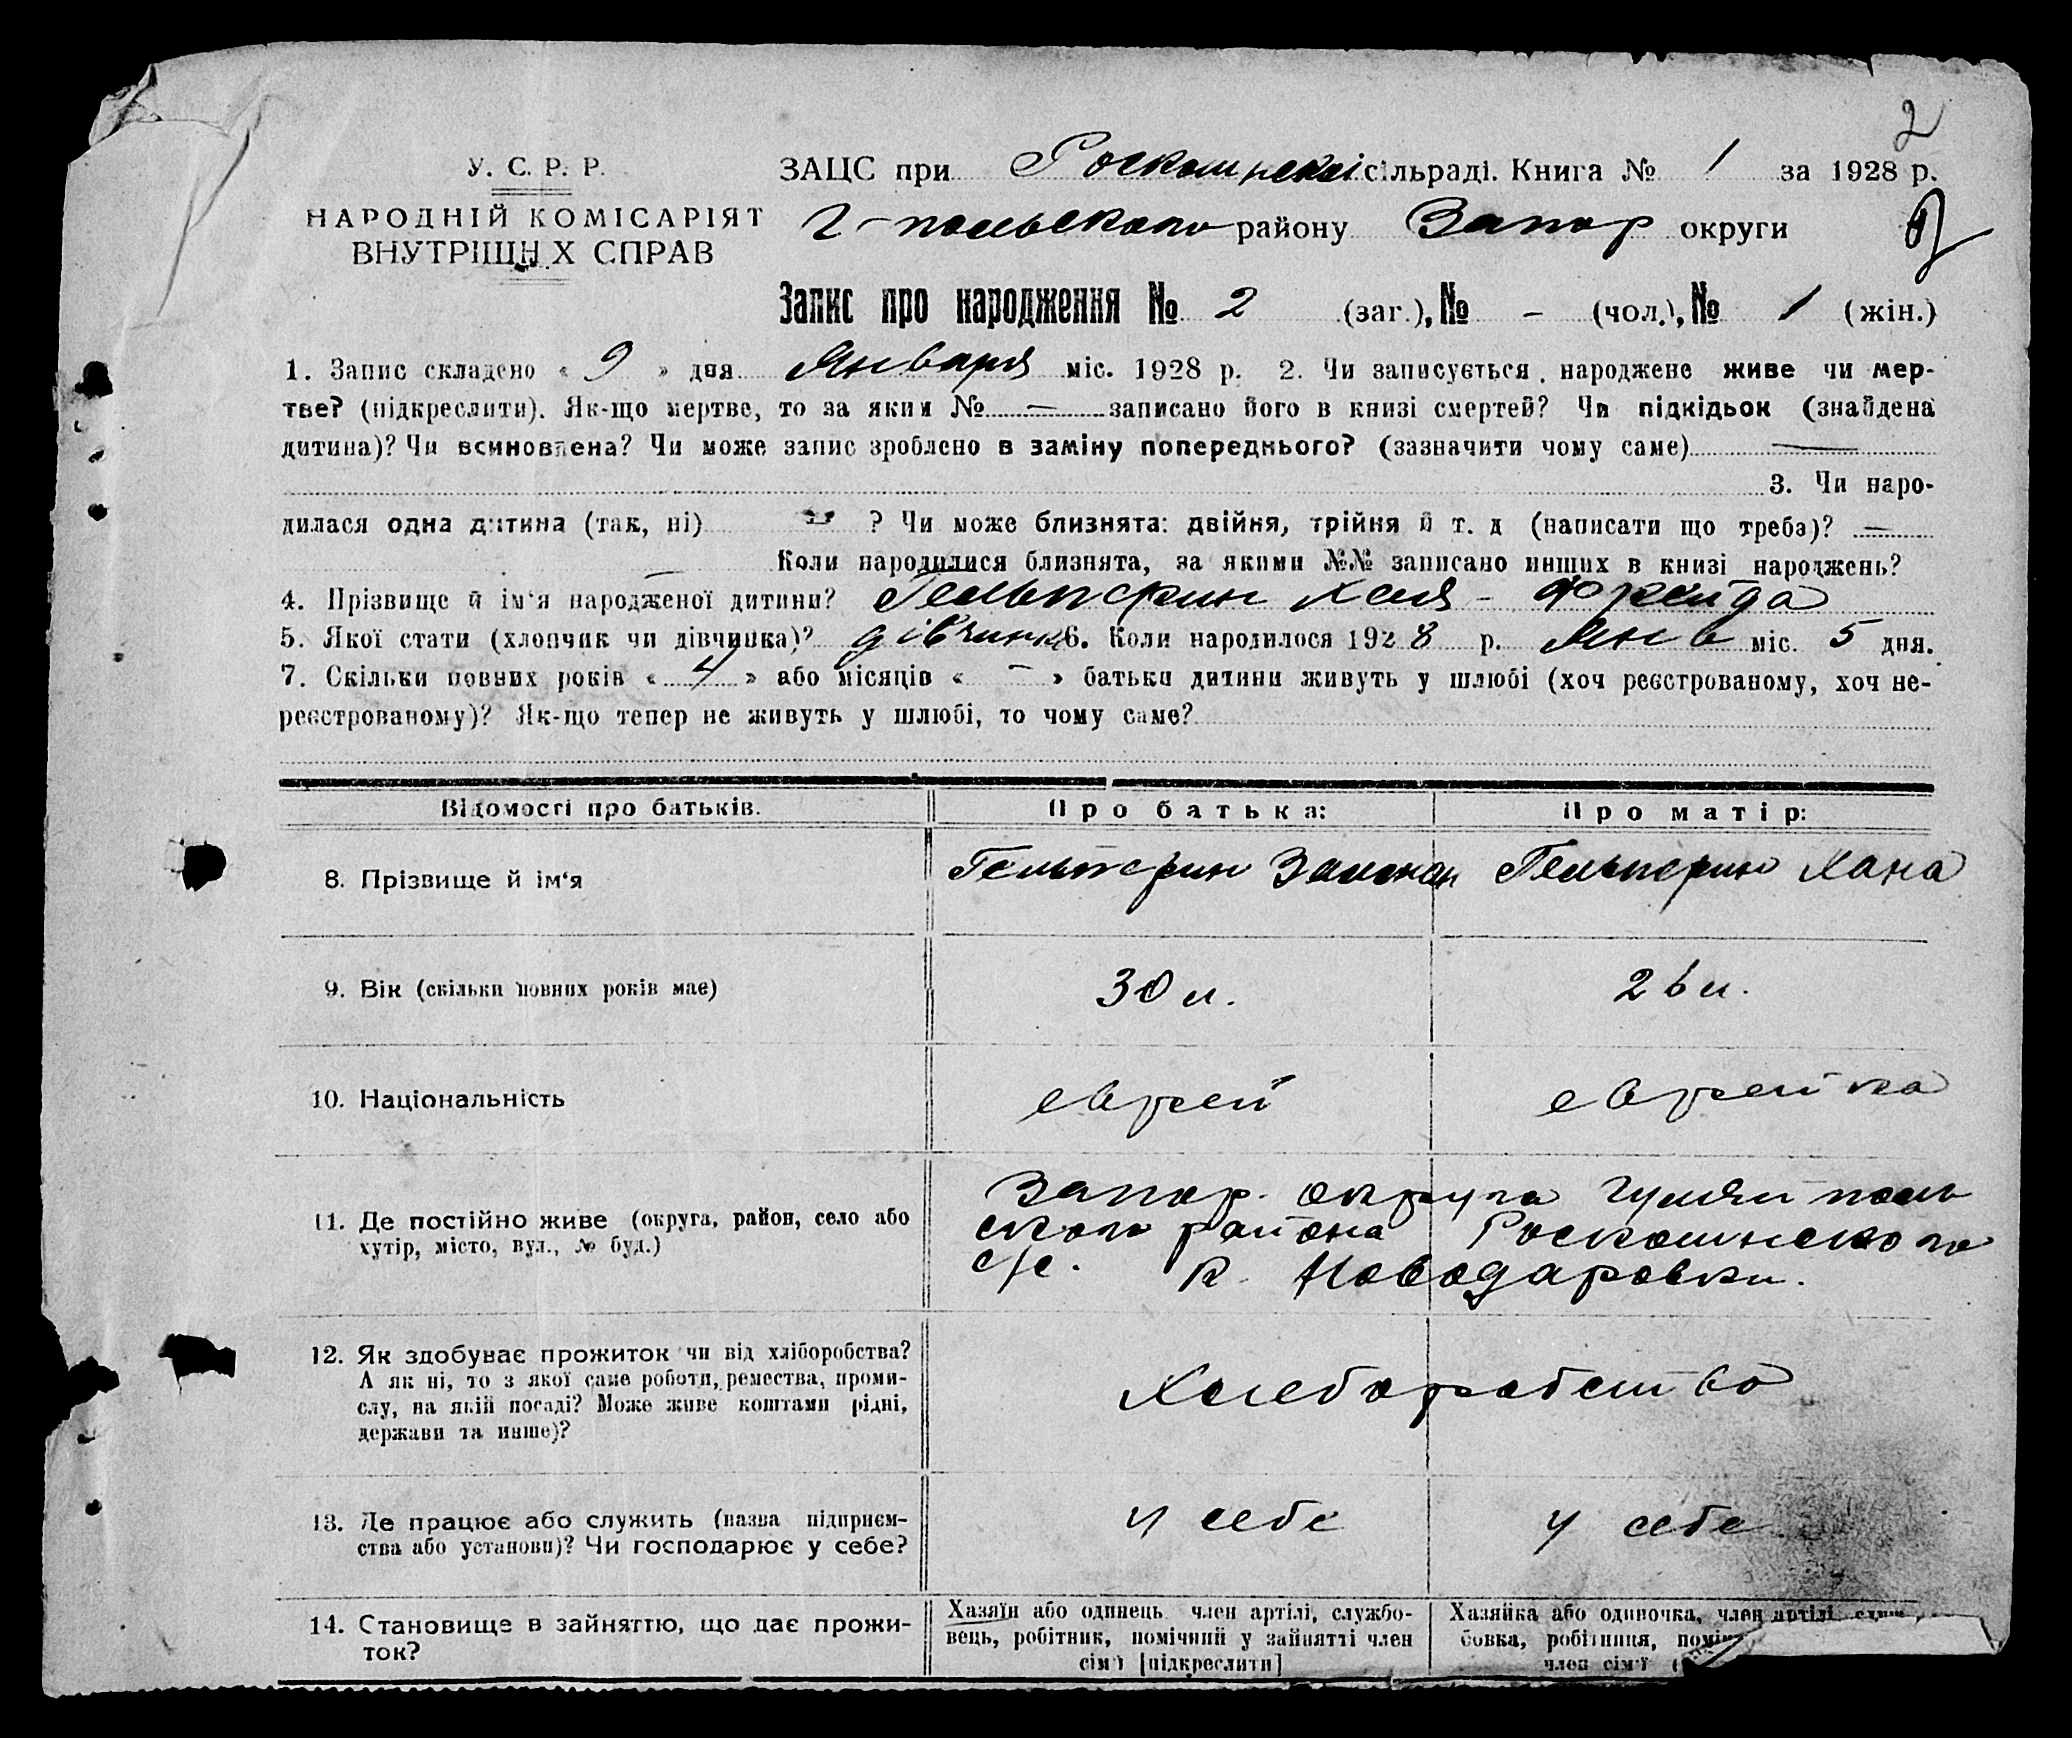 2
У. С. Р. Р.
НАРОДНІЙ КОМІСАРІЯТ
ВНУТРІШН Х СПРАВ
ЗАЦС при Роскошнскої сільраді. Книга № 1 за 1928 р.
Г-польского району Запор округи
Запис про народження № 2 (заг.), № - (чол.), № 1 (жін.)
1. Запис складено « 9 » дня Января міс. 1928 р. 2. Чи записується народжене живе чи мер-
тве? (підкреслити). Як-що мертве, то за яким № — записано його в книзі смертей? Чи підкідьок (знайдена
дитина)? Чи всиновлена? Чи може запис зроблено в заміну попереднього? (зазначити чому саме) —
3. Чи наро-
дилася одна дитина (так, ні) ? Чи може близнята: двійня, трійня й т. д (написати що треба)? —
— Коли народилися близнята, за якими №№ записано инших в книзі народжень?
4. Прізвище й ім‘я народженої дитини? Гельперин Хая - Фрейда
5. Якої стати (хлопчик чи дівчинка)? дівчинка 6. Коли народилося 1928 р. Янв міс. 5 дня.
7. Скільки повних років « 4 » або місяців « — » батьки дитини живуть у шлюбі (хоч реєстрованому, хоч не-
реєстрованому)? Як-що тепер не живуть у шлюбі, то чому саме?
Відомості про батьків. Про батька: Про матір:
8. Прізвище й ім‘я Гельперин Залман Гельперин Хана
9. Вік (скільки повних років має) 30 л. 26 л.
10. Національність еврей еврейка
11. Де постійно живе (округа, район, село або
хутір, місто, вул., № буд.)
Запор. округа Гуляйполь
ского района Роскошнского
с/с. к. Новодаровки.
12. Як здобуває прожиток чи від хліборобства?
А як ні, то з якої саме роботи, ремества, проми-
слу, на якій посаді? Може живе коштами рідні,
держави та инше)?
Хлеборобство
13. Де працює або служить (назва підприєм-
ства або установи)? Чи господарює у себе?
у себе у себе
14. Становище в зайняттю, що дає прожи-
ток?
Хазяїн або одинець член артілі, службо-
вець, робітник, помічний у зайнятті член
сім‘ї [підкреслити]
Хазяйка або одиночка, член артілі
бовка, робітниця,
член сім‘ї